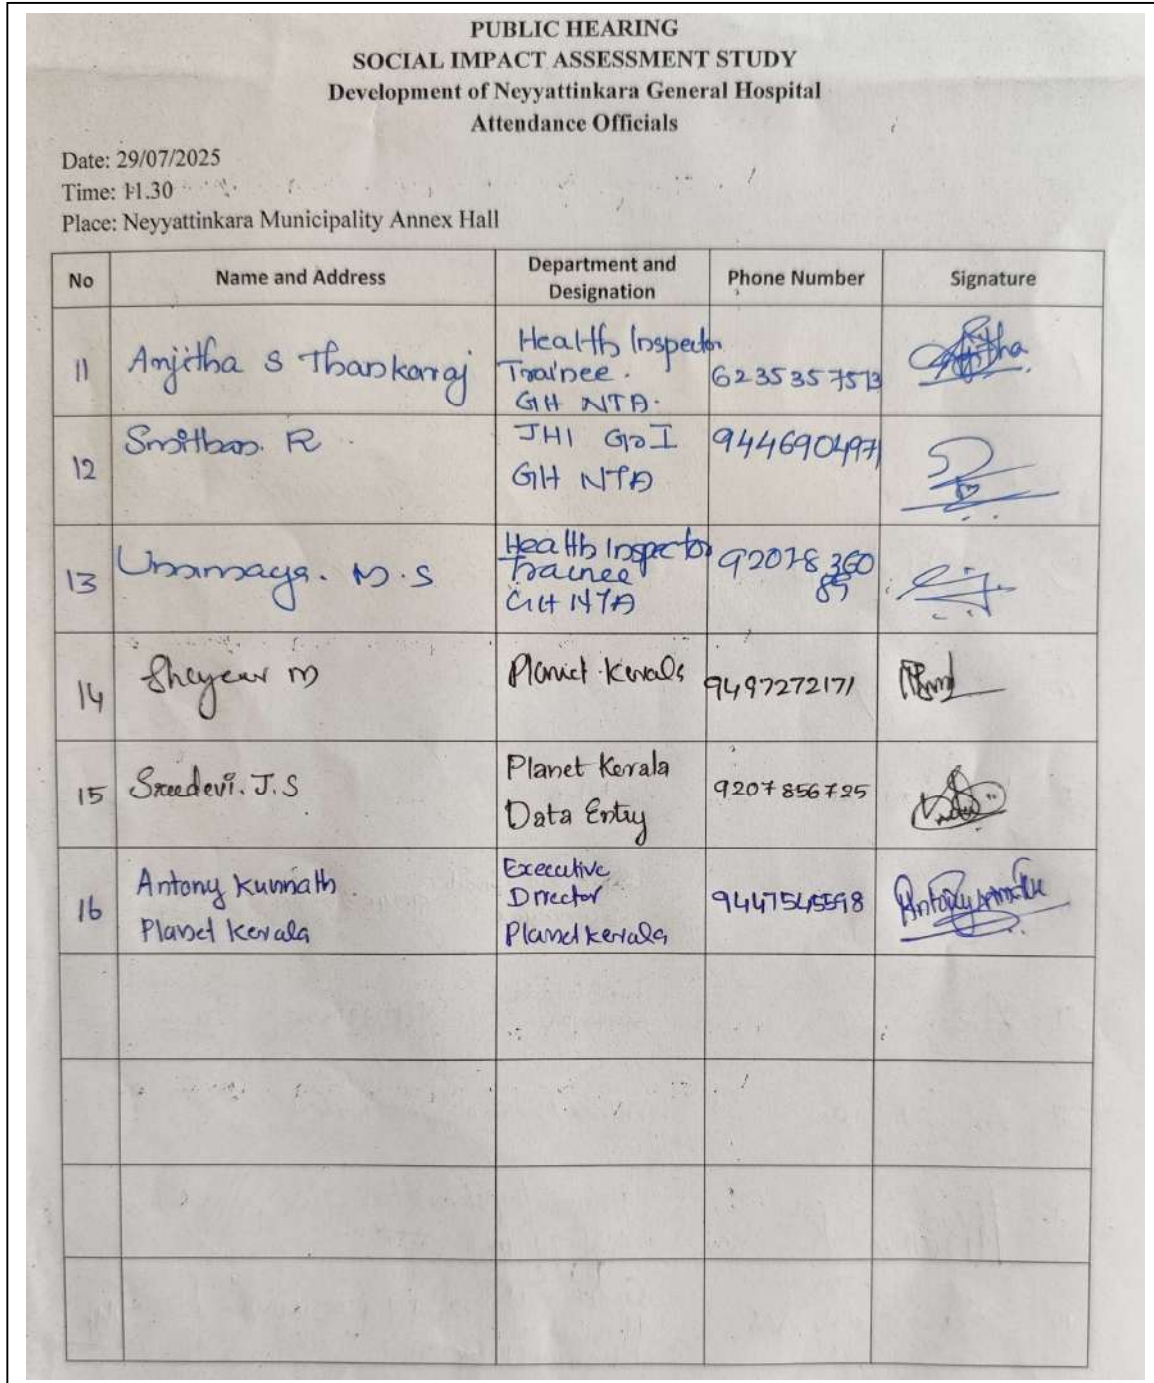 PUBLIC HEARING
SOCIAL IMPACT ASSESSMENT STUDY
Development of Neyyattinkara General Hospital
Attendance Officials
Date: 29/07/2025
Time: 11.30
Place: Neyyattinkara Municipality Annex Hall
No Name and Address Department and Designation Phone Number Signature
11 Anjitha S Thankaraj Health Inspector Trainee. GH NTA. 6235357513
12 R JHI GH NTA 9446904971
13 M.S Health Inspector Trainee GH NTA 92078 360 85
14 M Planet Kerala 9497272171
15 Sreedevi. J.S Planet Kerala Data Entry 9207856725
16 Antony Kunnath Planet Kerala Executive Director Planet Kerala